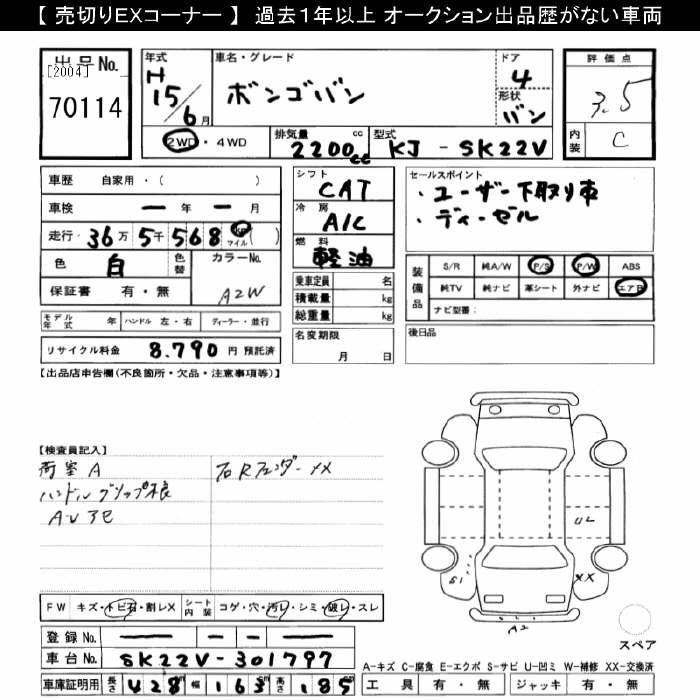 【 売切りEXコーナー 】 過去１年以上 オークション出品歴がない車両
出品No.
[2004]
70114
年式
H
15/6月
車名・グレード
ボンゴバン
ドア
4
形状
バン
評価点
3.5
内装
C
2WD・4WD
排気量 cc
2200cc
型式
KJ - SK22V
車歴 自家用・( )
車検 ー 年 ー 月
走行 36万 5千 568 km マイル ( )
色 白 色替 カラーNo. A2W
保証書 有・無
モデル年式 年 ハンドル 左・右 ディーラー・並行
リサイクル料金 8.790 円 預託済
シフト
CAT
冷房
A/C
燃料
軽油
乗車定員 名
積載量 kg
総重量 kg
名変期限
月 日
セールスポイント
・ユーザー下取り車
・ディーゼル
装備品
S/R 純A/W P/S P/W ABS
純TV 純ナビ 革シート 外ナビ エアB
ナビ型番：
後日品
【出品店申告欄(不良箇所・欠品・注意事項等)】
【検査員記入】
荷室A 右Rフェンダー XX
ハンドルグリップ不良
UL
S1
XX
A2
スペア
FW キズ・トビ石・割レX シート内装 コゲ・穴・汚レ・シミ・破レ・スレ
登録No. ー ー ー ー
車台No. SK22V-301797
車庫証明用 長さ 428 幅 163 高さ 185
A-キズ C-腐食 E-エクボ S-サビ U-凹ミ W-補修 XX-交換済
工具 有・無 ジャッキ 有・無